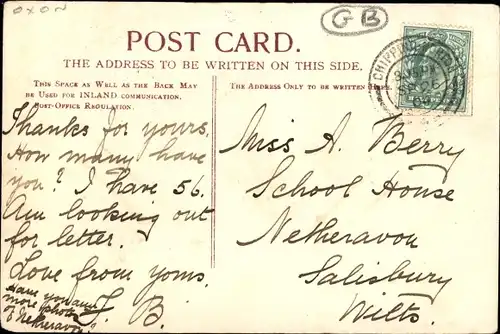 OXON
GB
POST CARD.
THE ADDRESS TO BE WRITTEN ON THIS SIDE.
THIS SPACE AS WELL AS THE BACK MAY
BE USED FOR INLAND COMMUNICATION.
POST-OFFICE REGULATION.
THE ADDRESS ONLY TO BE WRITTEN HERE.
CHIPPING
Thanks for yours.
How many have
you? I have 56.
Am looking out
for letter.
Love from yoms.
J. B.
Have you any
more photos
of Netheravon?
Miss A. Berry
School House
Netheravon
Salisbury
Wilts.